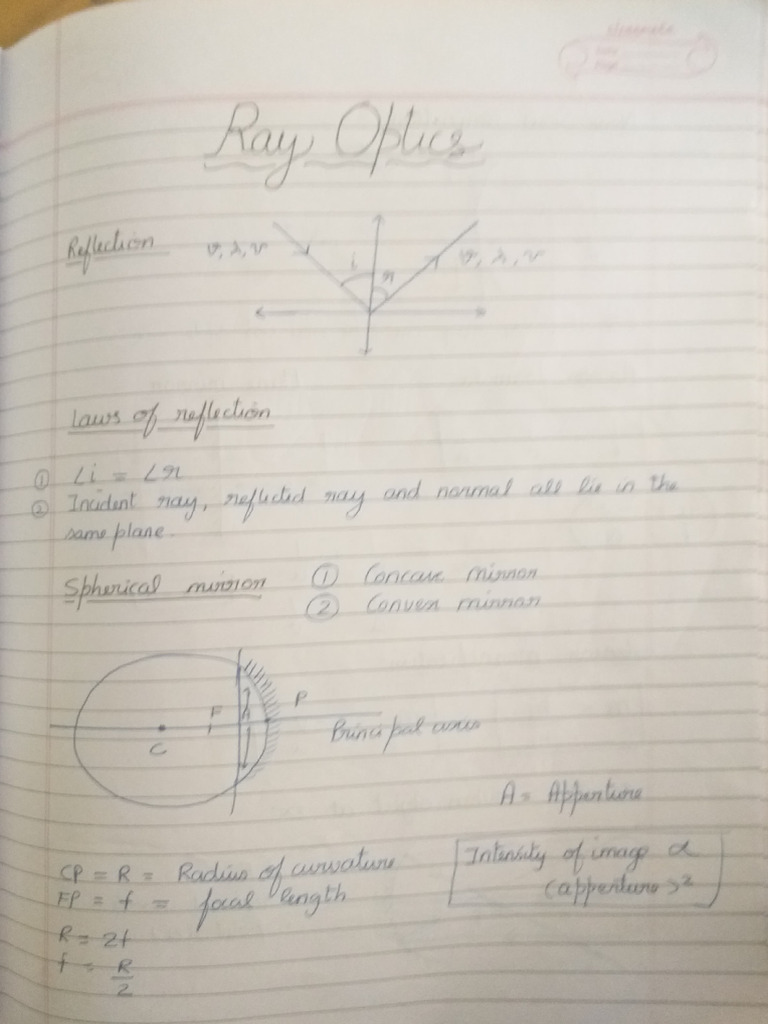 Ray Optics
Reflection
v, λ, ν
i
r
v, λ, ν
Laws of reflection
① ∠i = ∠r
② Incident ray, reflected ray and normal all lie in the
same plane.
Spherical mirror ① Concave mirror
② Convex mirror
F
A
P
C
Principal axis
A = Apperture
CP = R = Radius of curvature
FP = f = focal length
Intensity of image α
(apperture)²
R = 2f
f = R/2